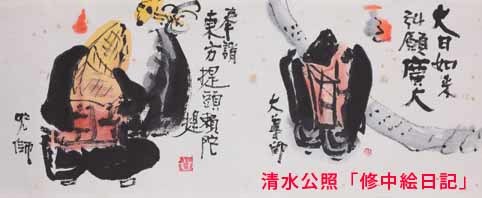 大日如来
願廣大
大導師
奉請
東方提頭頼陀
咒師
清水公照「修中絵日記」